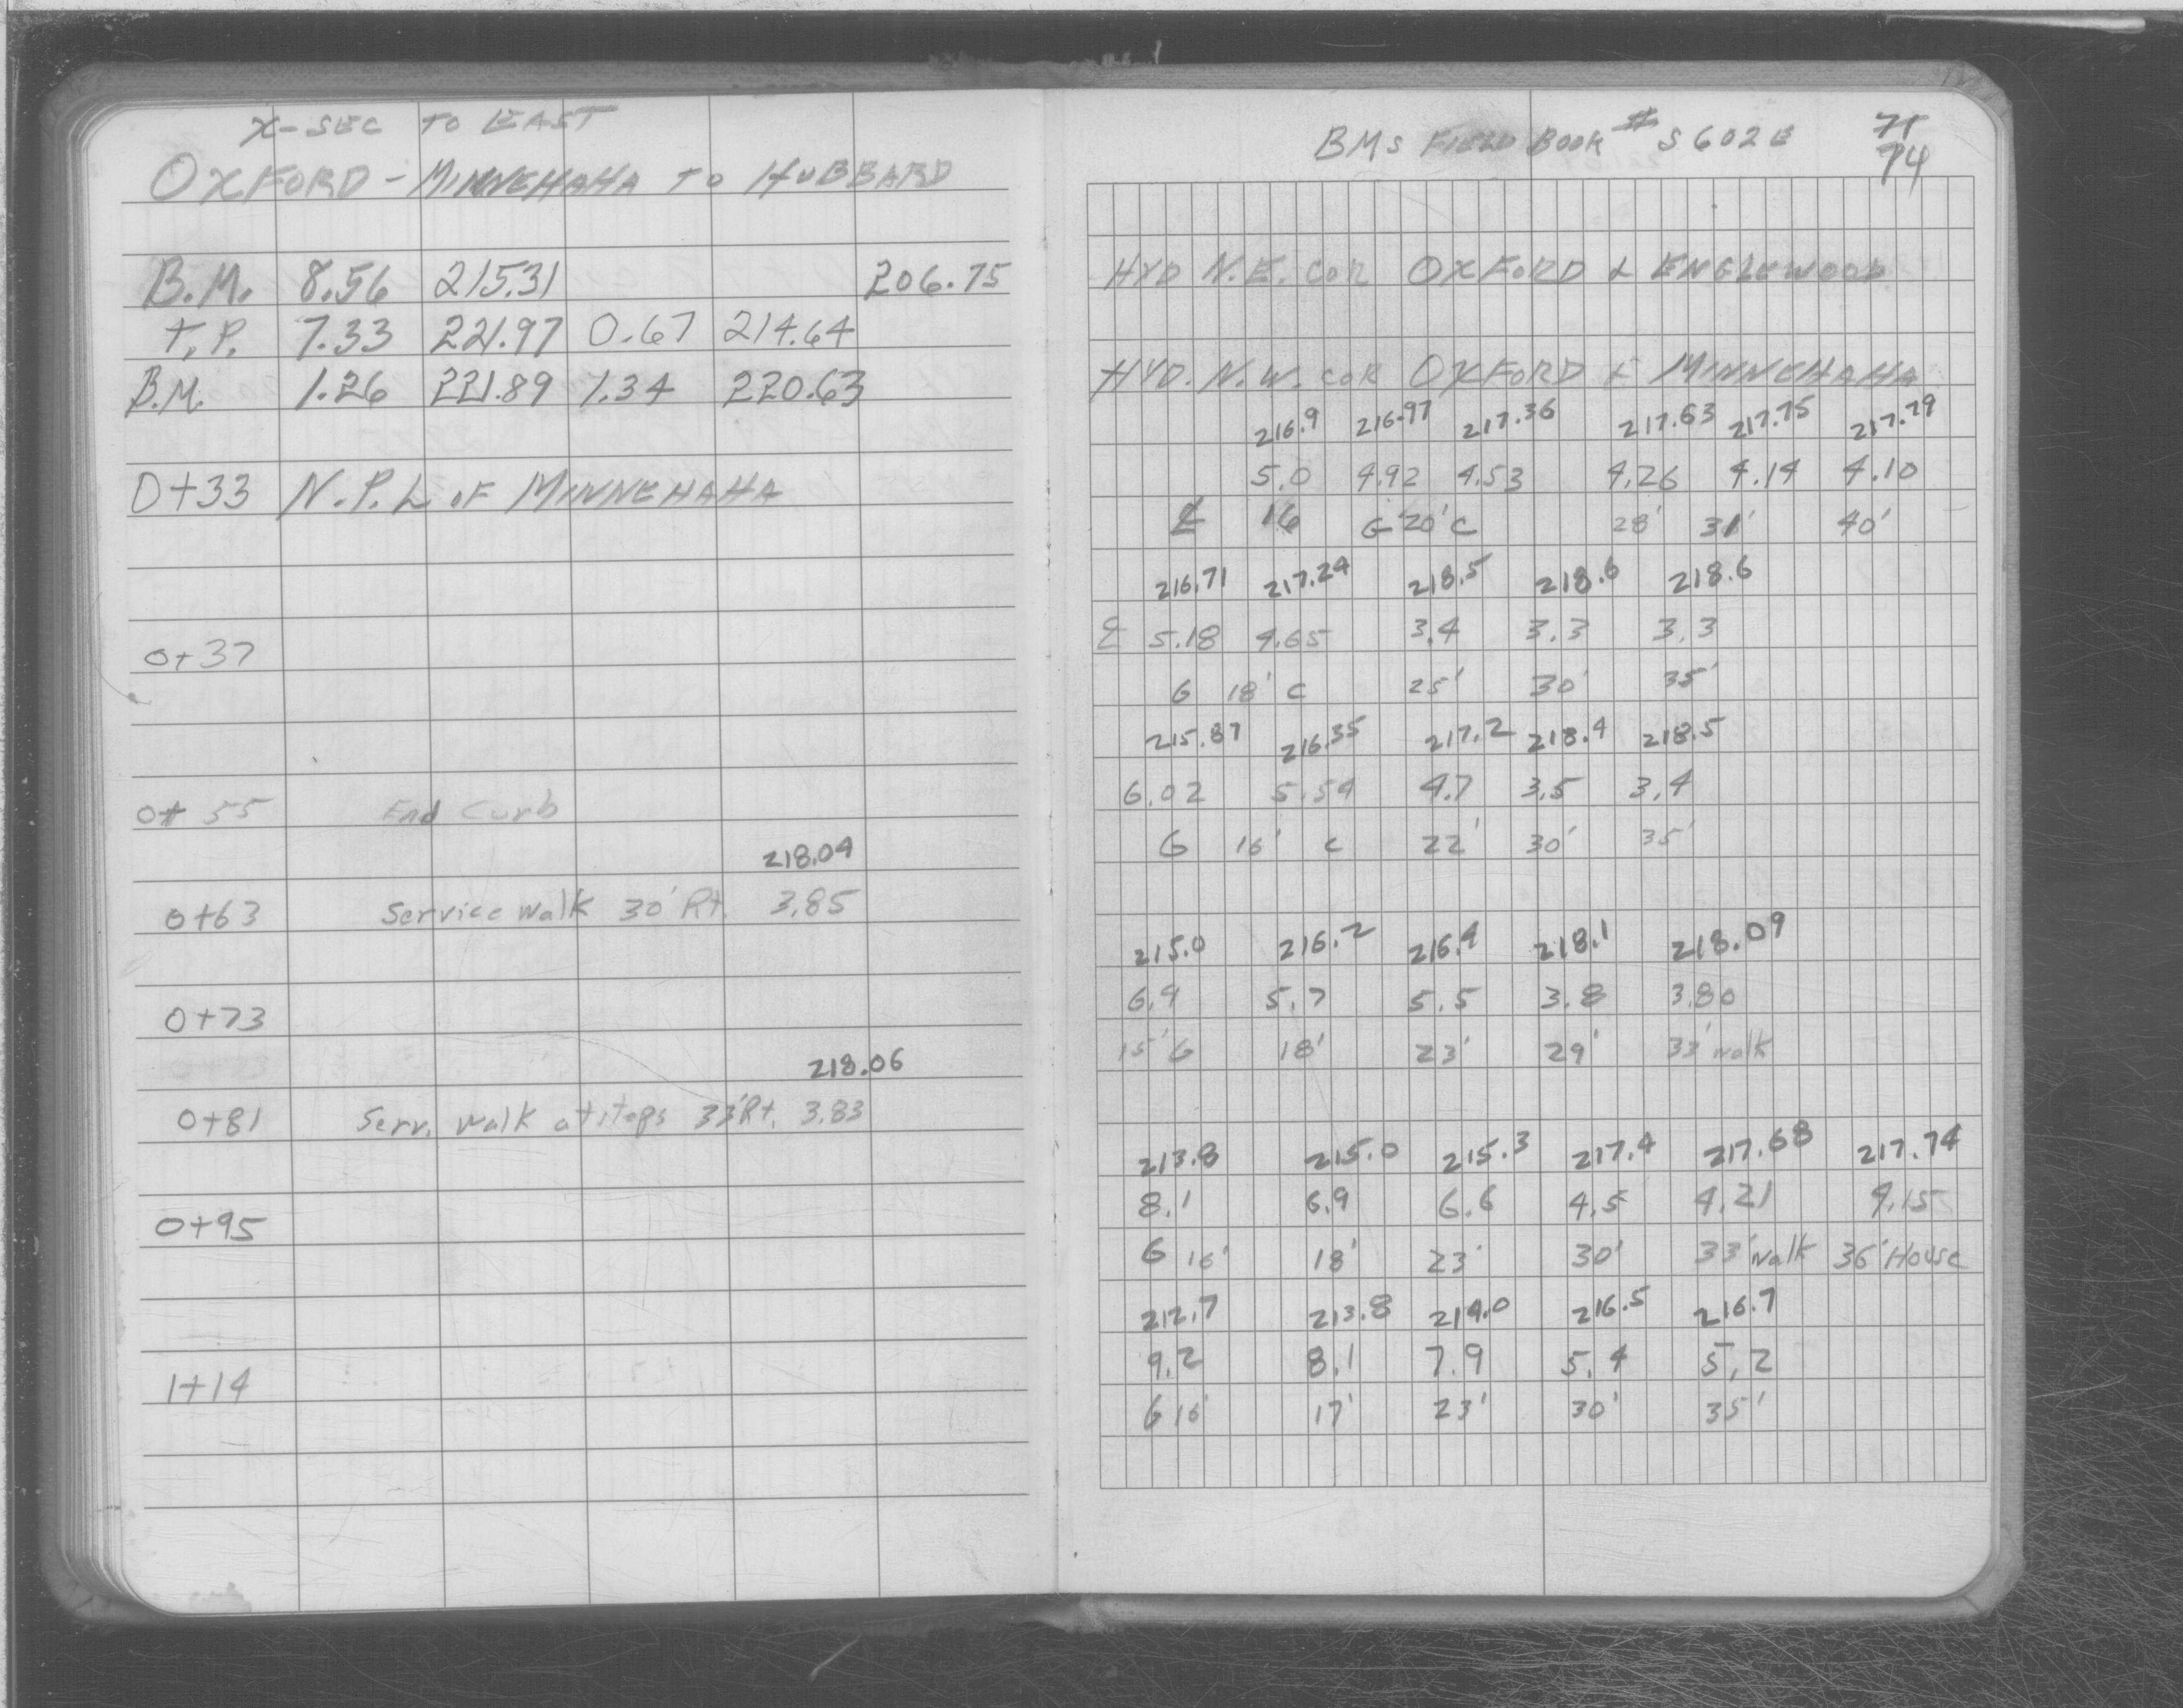 X-SEC TO EAST
OXFORD - MINNEHAHA TO HUBBARD
B.M. 8.56 215.31 206.75
T.P. 7.33 221.97 0.67 214.64
B.M. 1.26 221.89 1.34 220.63
0+33 N.P.L OF MINNEHAHA
0+37
0+55 End Curb
218.04
0+63 Service Walk 30' Rt. 3.85
0+73
218.06
0+81 Serv. walk at steps 33' Rt. 3.83
0+95
1+14
BMs FIELD BOOK # S602E
74
HYD N.E. COR OXFORD & ENGLEWOOD
HYD. N.W. COR OXFORD & MINNEHAHA
216.9 216.97 217.36 217.63 217.75 217.79
5.0 4.92 4.53 4.26 4.14 4.10
16 G 20' C 28' 31' 40'
216.71 217.24 218.5 218.6 218.6
5.18 4.65 3.4 3.3 3.3
G 18' C 25' 30' 35'
215.87 216.35 217.2 218.4 218.5
6.02 5.54 4.7 3.5 3.4
G 16' C 22' 30' 35'
215.0 216.2 216.4 218.1 218.09
6.9 5.7 5.5 3.8 3.80
15' G 18' 23' 29' 33' walk
213.8 215.0 215.3 217.4 217.68 217.74
8.1 6.9 6.6 4.5 4.21 4.15
G 16' 18' 23' 30' 33' walk 36' House
212.7 213.8 214.0 216.5 216.7
9.2 8.1 7.9 5.4 5.2
G 16' 17' 23' 30' 35'